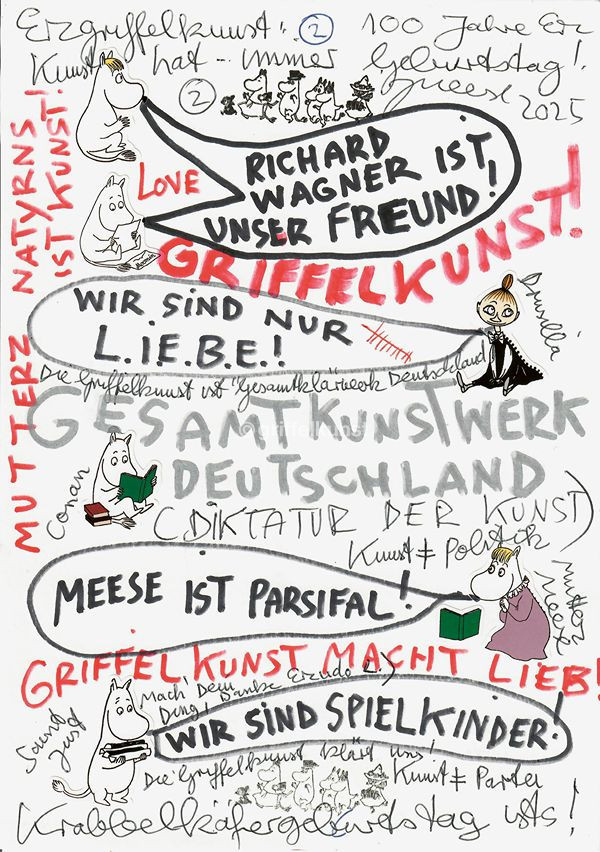 Erzgriffelkunst: 2 100 Jahre Erz
Kunst hat immer Geburtstag!
2 Meese 2025
RICHARD
WAGNER IST
UNSER FREUND!
LOVE
NATYRNS
IST KUNST!
GRIFFELKUNST!
WIR SIND NUR
L.IE.B.E.!
Druzilla
Die Griffelkunst ist "Gesamtklärwerk Deutschland
GESAMTKUNSTWERK
DEUTSCHLAND
MUTTERZ
Conan
(DIKTATUR DER KUNST)
Kunst ≠ Politik
MEESE IST PARSIFAL!
Mutterz
Meese
GRIFFELKUNST MACHT LIEB!
Mach' Dein
Ding! Danke Erzudo
WIR SIND SPIELKINDER!
Die Griffelkunst klärt uns!
Kunst ≠ Partei
Krabbelkäfergeburtstag ists!